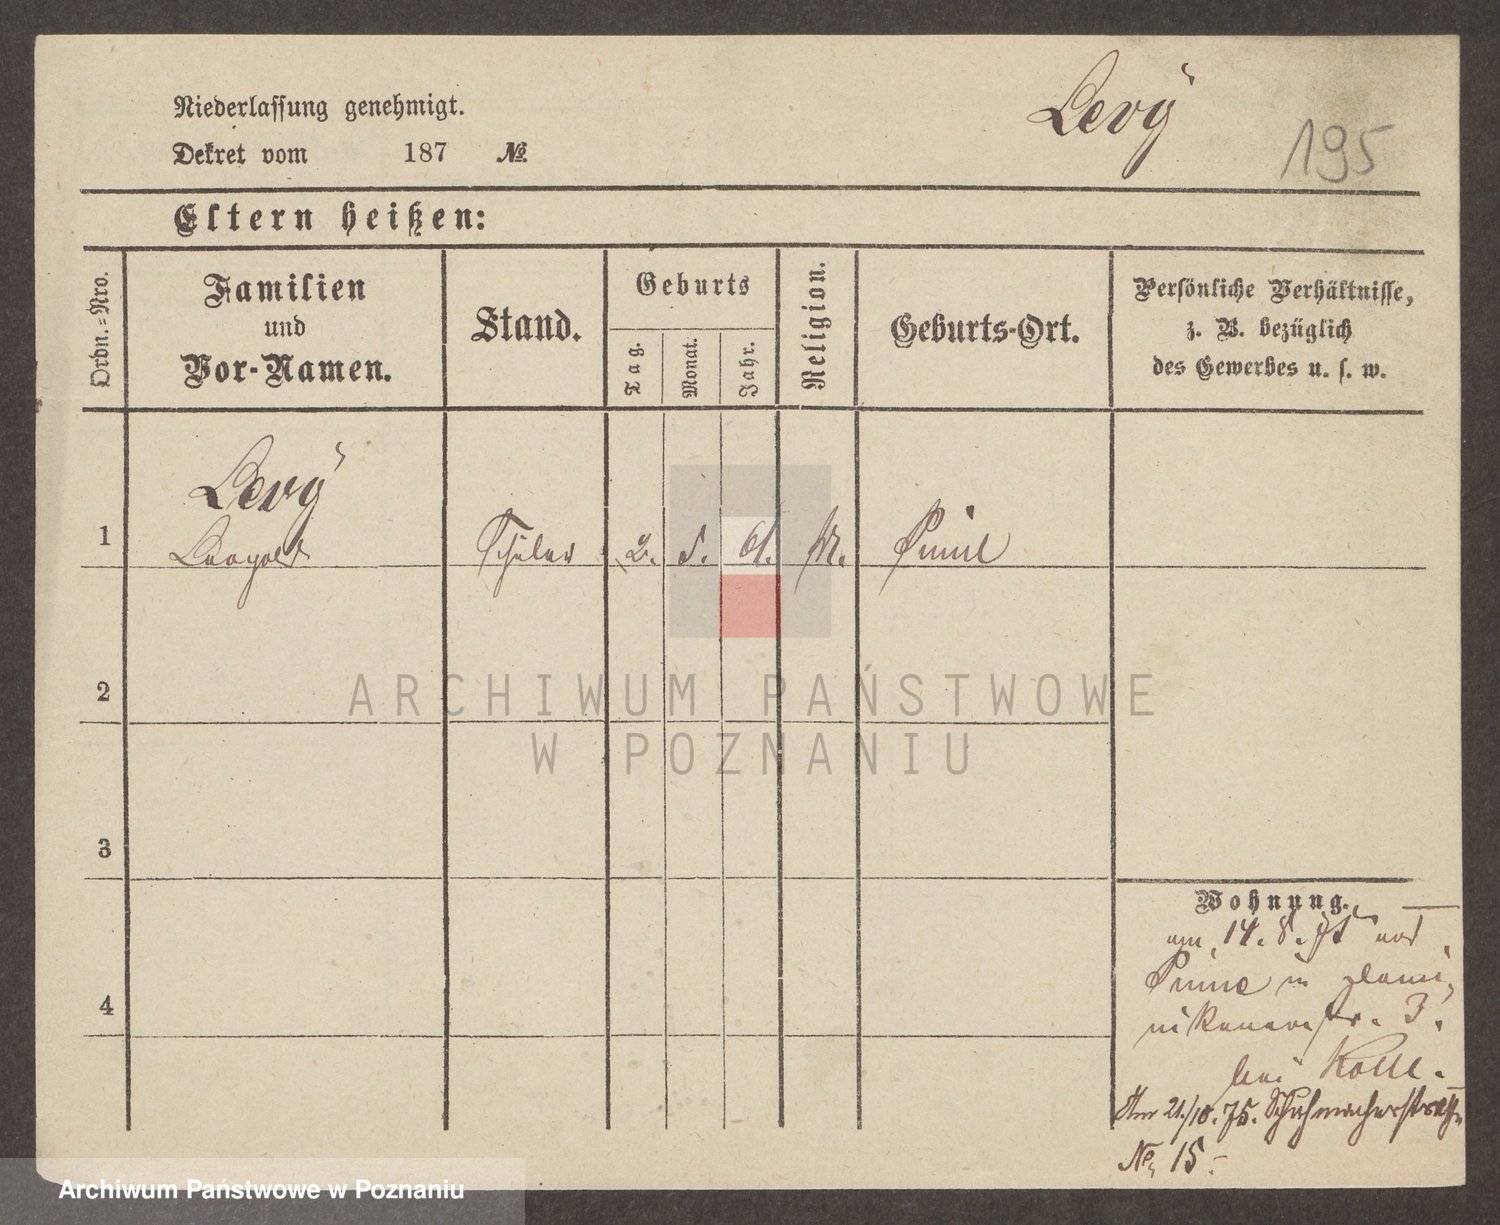 Levÿ
195
Niederlassung genehmigt.
Dekret vom 187 №
Eltern heißen:
Ordn.-Nro.
Familien
und
Vor-Namen.
Stand.
Geburts
Tag.
Monat.
Jahr.
Religion.
Geburts-Ort.
Persönliche Verhältnisse,
z. B. bezüglich
des Gewerbes u. s. w.
Levÿ
1 Leopold Schüler 2. 5. 61. M. Pinne
2
3
4
Wohnung.
am 14. 8. 75 aus
Pinne in Domi-
nikanerstr. 3.
bei
Am 21/10. 75. Schuhmacherstraße
No 15.
ARCHIWUM PAŃSTWOWE
W POZNANIU
Archiwum Państwowe w Poznaniu